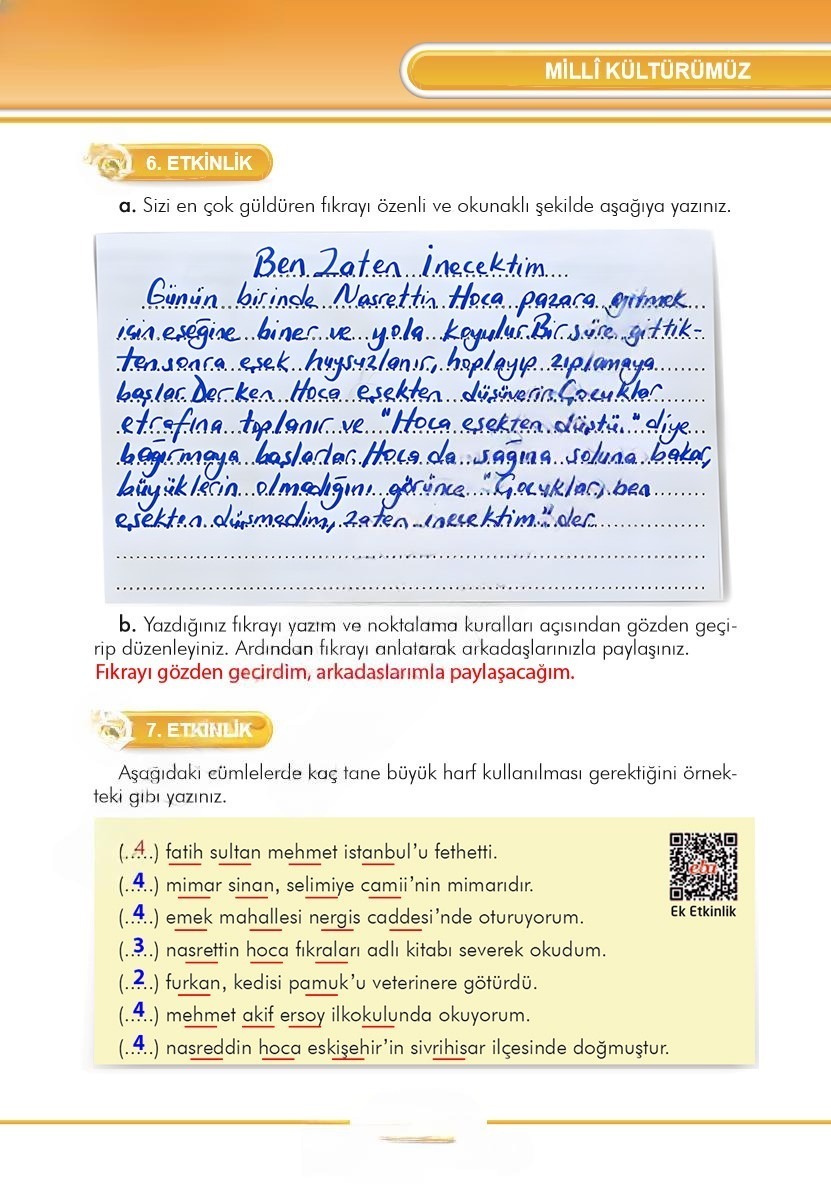 MİLLÎ KÜLTÜRÜMÜZ
6. ETKİNLİK
a. Sizi en çok güldüren fıkrayı özenli ve okunaklı şekilde aşağıya yazınız.
Ben Zaten İnecektim
Günün birinde Nasrettin Hoca pazara gitmek
için eşeğine biner ve yola koyulur. Bir süre gittik-
ten sonra eşek huysuzlanır, hoplayıp zıplamaya
başlar. Derken Hoca eşekten düşüverir. Çocuklar
etrafına toplanır ve "Hoca eşekten düştü." diye
bağırmaya başlarlar. Hoca da sağına soluna bakar,
büyüklerin olmadığını görünce "Çocuklar, ben
eşekten düşmedim, zaten inecektim." der.
b. Yazdığınız fıkrayı yazım ve noktalama kuralları açısından gözden geçi-
rip düzenleyiniz. Ardından fıkrayı anlatarak arkadaşlarınızla paylaşınız.
Fıkrayı gözden geçirdim, arkadaslarımla paylaşacağım.
7. ETKİNLİK
Aşağıdaki cümlelerde kaç tane büyük harf kullanılması gerektiğini örnek-
teki gibi yazınız.
(..4..) fatih sultan mehmet istanbul'u fethetti.
(..4..) mimar sinan, selimiye camii'nin mimarıdır.
(..4..) emek mahallesi nergis caddesi'nde oturuyorum.
(..3..) nasrettin hoca fıkraları adlı kitabı severek okudum.
(..2..) furkan, kedisi pamuk'u veterinere götürdü.
(..4..) mehmet akif ersoy ilkokulunda okuyorum.
(..4..) nasreddin hoca eskişehir'in sivrihisar ilçesinde doğmuştur.
eba
Ek Etkinlik